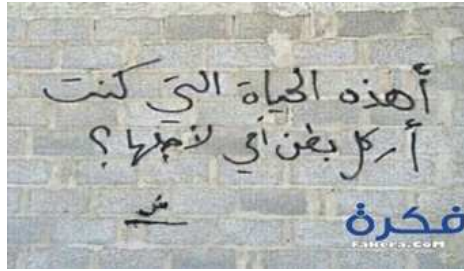 أهذه الحياة التي كنت
أركل بطن أمي لأجلها؟
ش
فكرة
FAKERA.COM